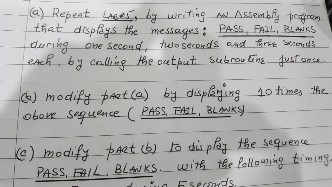 (a) Repeat LAB#5, by writing AN Assembly program
that displays the messages: PASS, FAIL, BLANKS
during one second, two seconds and three seconds
each, by calling the output subroutine just once.
(b) modify part(a) by displaying 10 times the
above sequence (PASS, FAIL, BLANKS)
(c) modify part (b) to display the sequence
PASS, FAIL, BLANKS. with the following timing.
5 seconds.